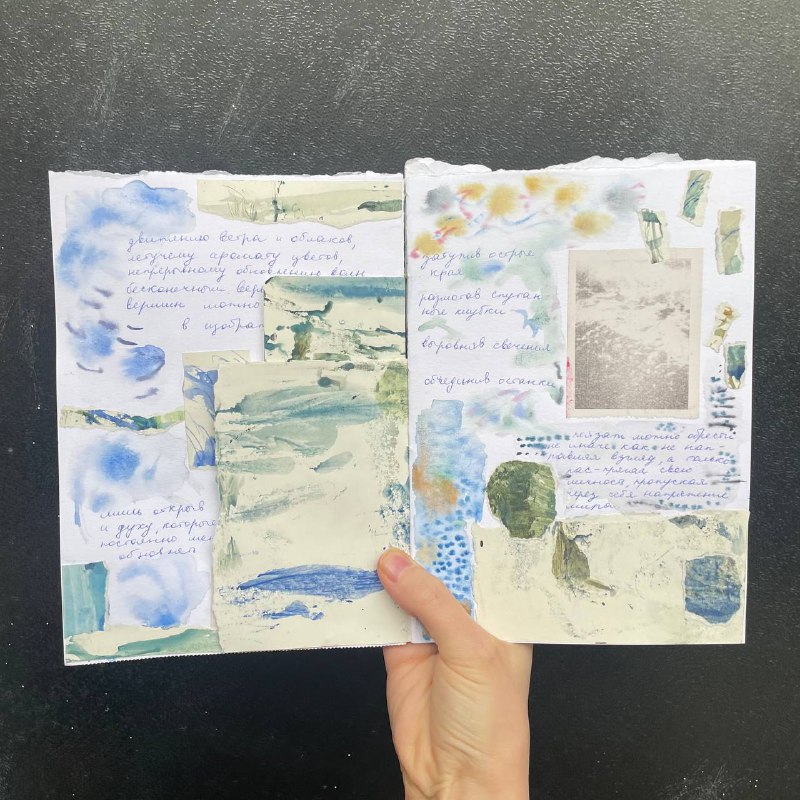 движению ветра и облаков,
летучему аромату цветов,
непрерывному обновлению волн
бесконечным
вершин можно
в изобра
лишь открыв
и духу, которые
постоянно
обновляет
затупив острые
края
размотав спутан
ные клубки
выровняв свечения
объединив останки
можно обрести
не иначе как не нап-
равляя взгляд, а только
рас-прягая свою
пропуская
через себя напряжение
мира